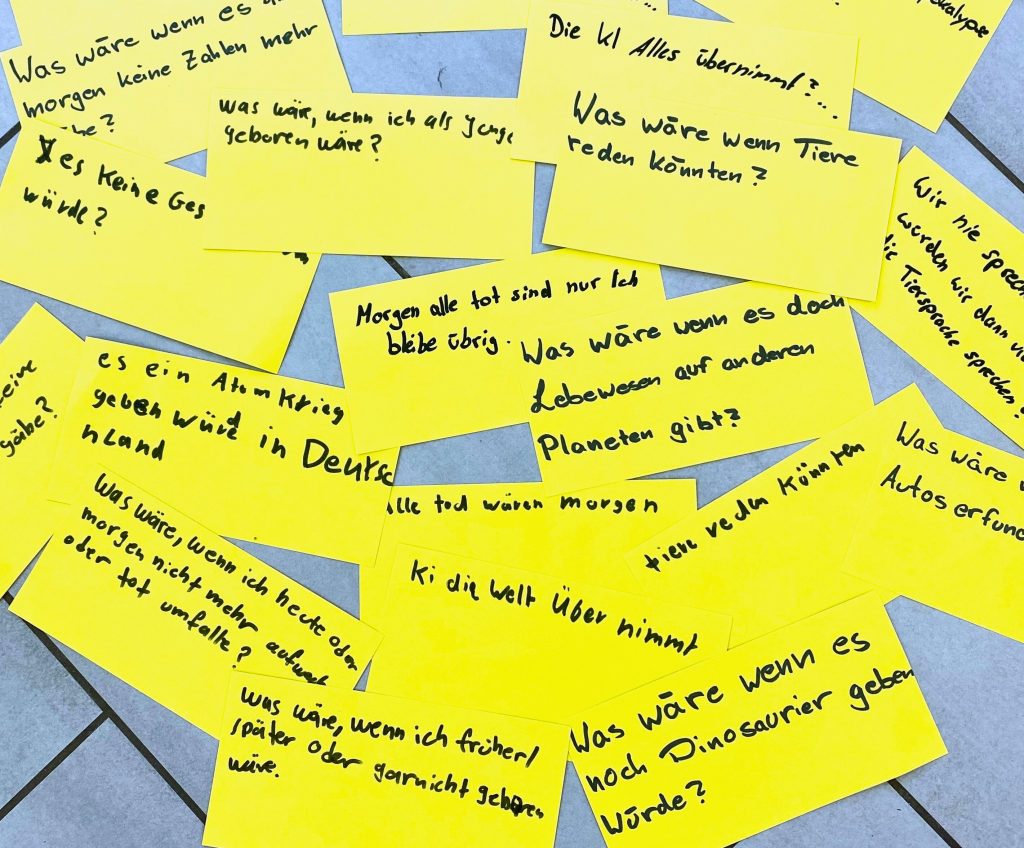 Was wäre wenn es
morgen keine Zahlen mehr
was wäre, wenn ich als Junge
geboren wäre?
Die KI Alles übernimmt?...
Was wäre wenn Tiere
reden könnten?
es keine Ges
würde?
Wir nie sprech
würden wir dann
die Tiersprache sprechen?
Morgen alle tot sind nur Ich
bleibe übrig.
Was wäre wenn es doch
Lebewesen auf anderen
Planeten gibt?
keine
gäbe?
es ein Atomkrieg
geben würd in Deutsc
hLand
Was wäre
Autos erfund
Was wäre, wenn ich heute oder
morgen nicht mehr aufwach
oder tot umfalle?
Alle tod wären morgen
tiere reden könnten
Ki die Welt Über nimmt
was wäre, wenn ich früher/
später oder garnicht geboren
wäre.
Was wäre wenn es
noch Dinosaurier geben
würde?